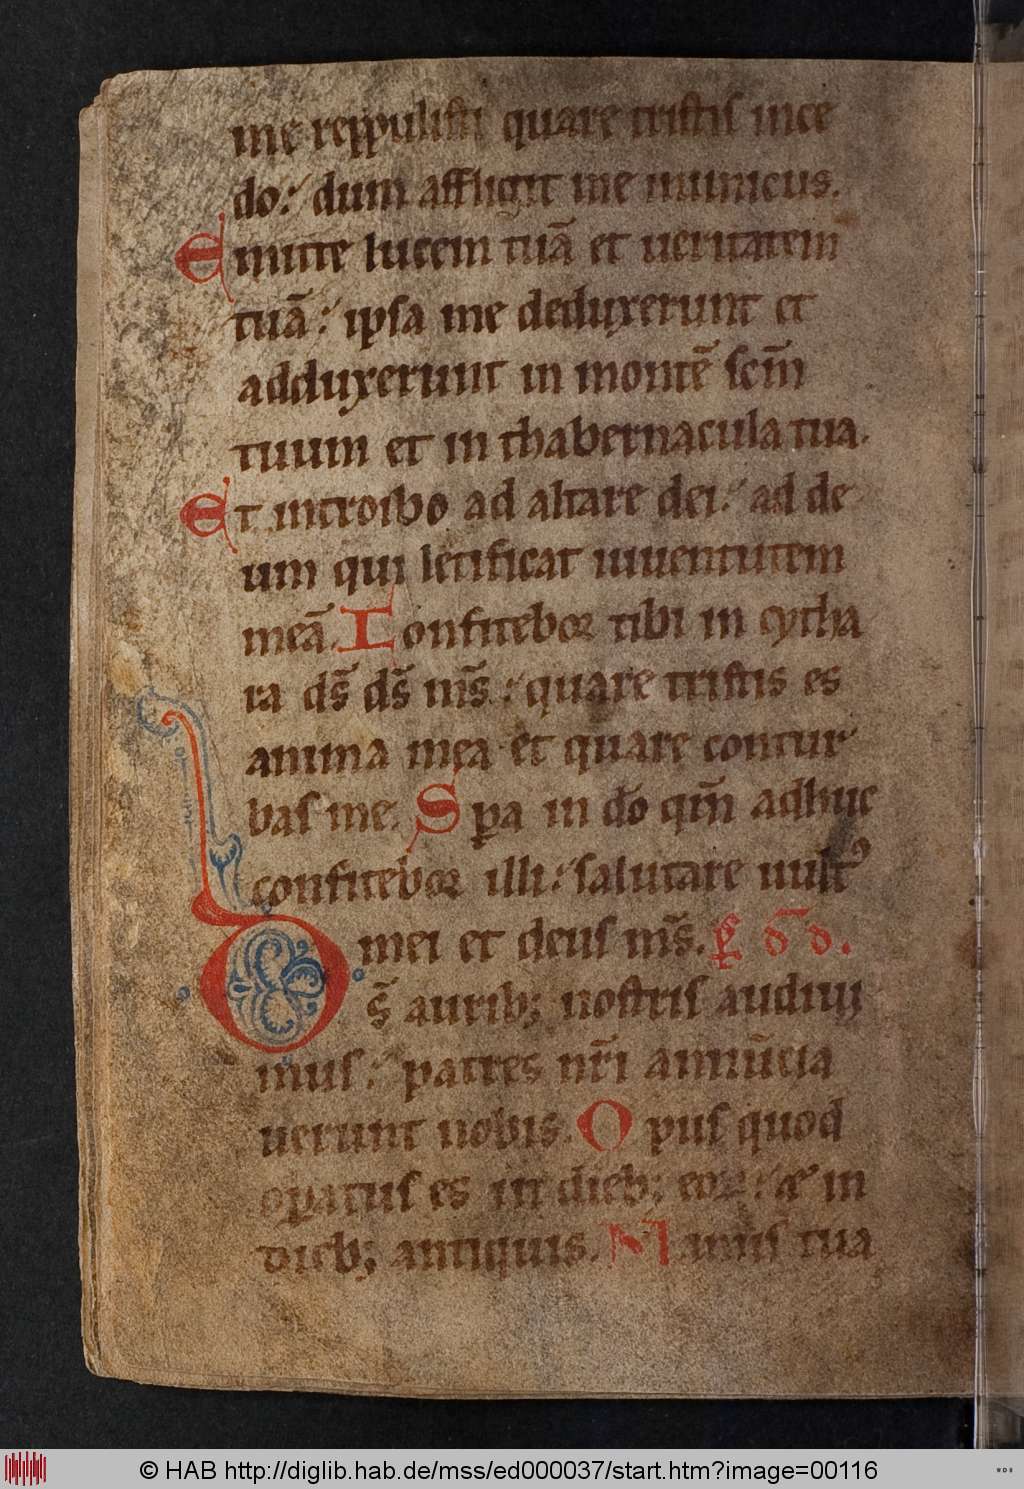 me reppulisti quare tristis ince
do: dum affligit me inimicus.
Emitte lucem tuā et ueritatem
tuā: ipsa me deduxerunt et
adduxerunt in montē scm̄
tuum et in thabernacula tua.
Et introibo ad altare dei: ad de
um qui letificat iuuentutem
meā. Confitebor tibi in cytha
ra ds̄ ds̄ ms̄: quare tristis es
anima mea et quare contur
bas me. Spa in do qm̄ adhuc
confitebor illi: salutare uult᾽
mei et deus ms̄. ps dd.
Ds̄ aurib; nostris audiui
mus: patres nr̄i annūcia
uerunt nobis. Opus quod
opatus es in dieb; eoꝝ: & in
dieb; antiquis. Manus tua
© HAB http://diglib.hab.de/mss/ed000037/start.htm?image=00116